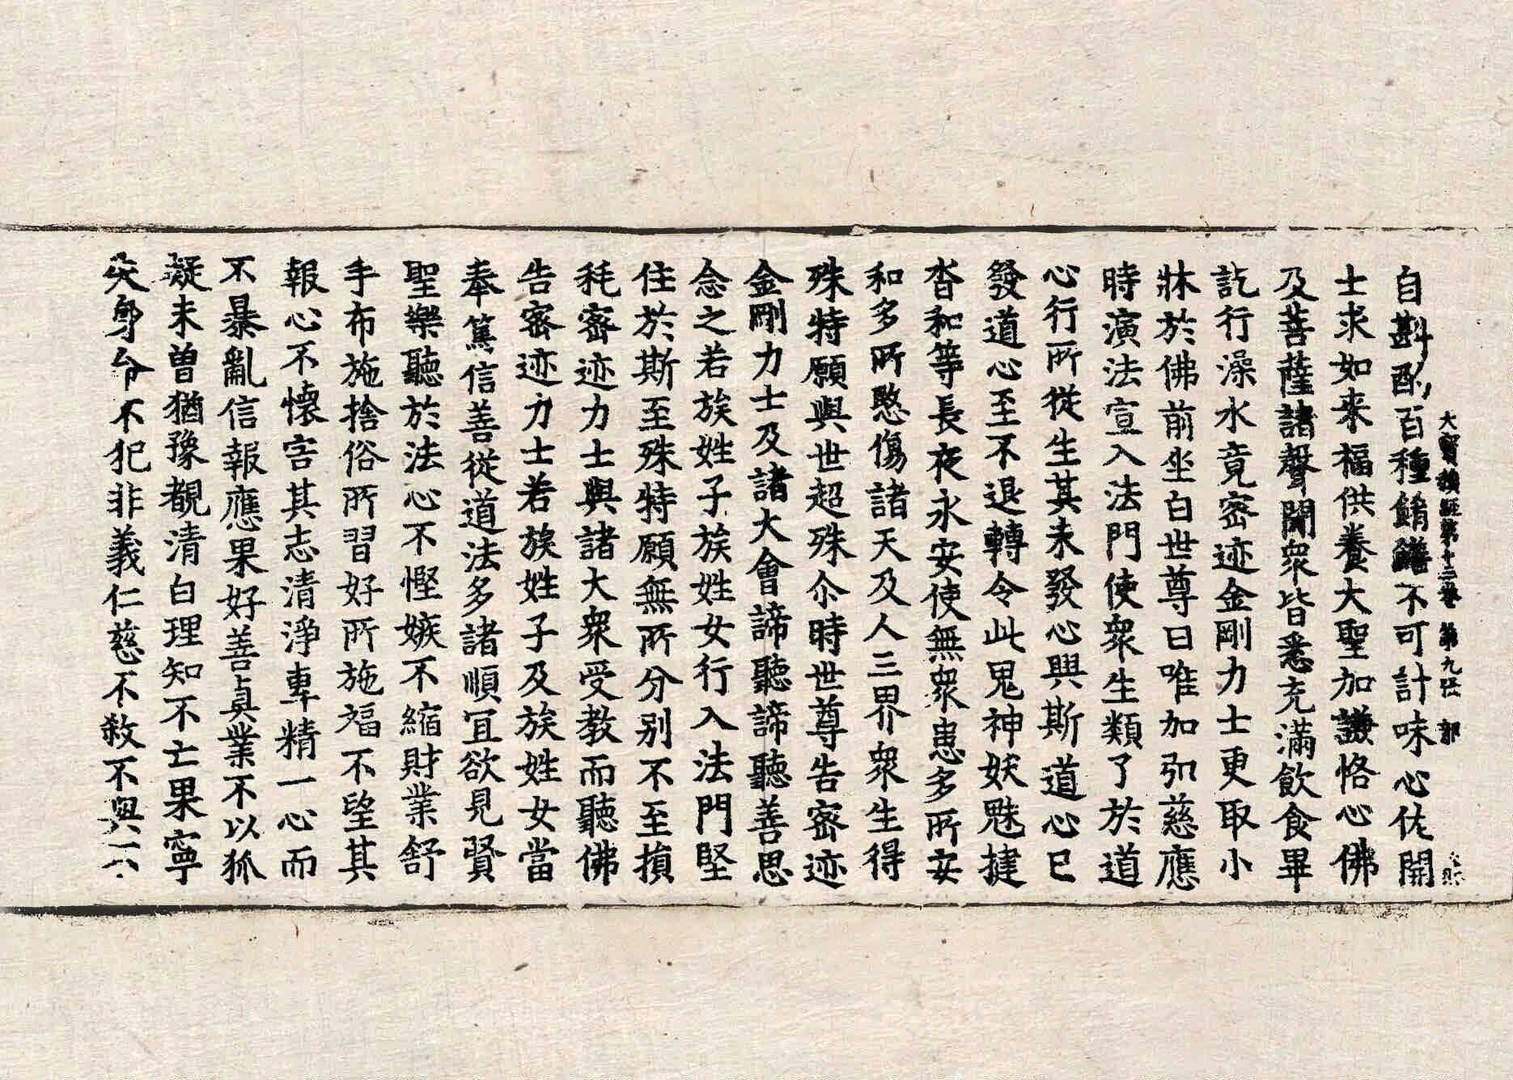 大寶積經第十三卷 第九张 郭
自斟酌百種餚饍不可計味心佐開
士求如来福供養大聖加謙恪心佛
及菩薩諸聲聞衆皆悉充滿飲食畢
訖行澡水竟密迹金剛力士更取小
牀於佛前坐白世尊曰唯加弘慈應
時演法宣入法門使衆生類了於道
心行所從生其未發心與斯道心已
發道心至不退轉令此鬼神妖魅揵
沓和等長夜永安使無衆患多所安
和多所愍傷諸天及人三界衆生得
殊特願與世超殊尒時世尊告密迹
金剛力士及諸大會諦聽諦聽善思
念之若族姓子族姓女行入法門堅
住於斯至殊特願無所分别不至損
耗密迹力士與諸大衆受教而聽佛
告密迹力士若族姓子及族姓女當
奉篤信善從道法多諸順冝欲見賢
聖樂聽於法心不慳嫉不縮財業舒
手布施捨俗所習好所施福不望其
報心不懷害其志清淨專精一心而
不暴亂信報應果好善真業不以狐
疑未曾猶豫覩清白理知不亡果寧
失身命不犯非義仁慈不煞不與